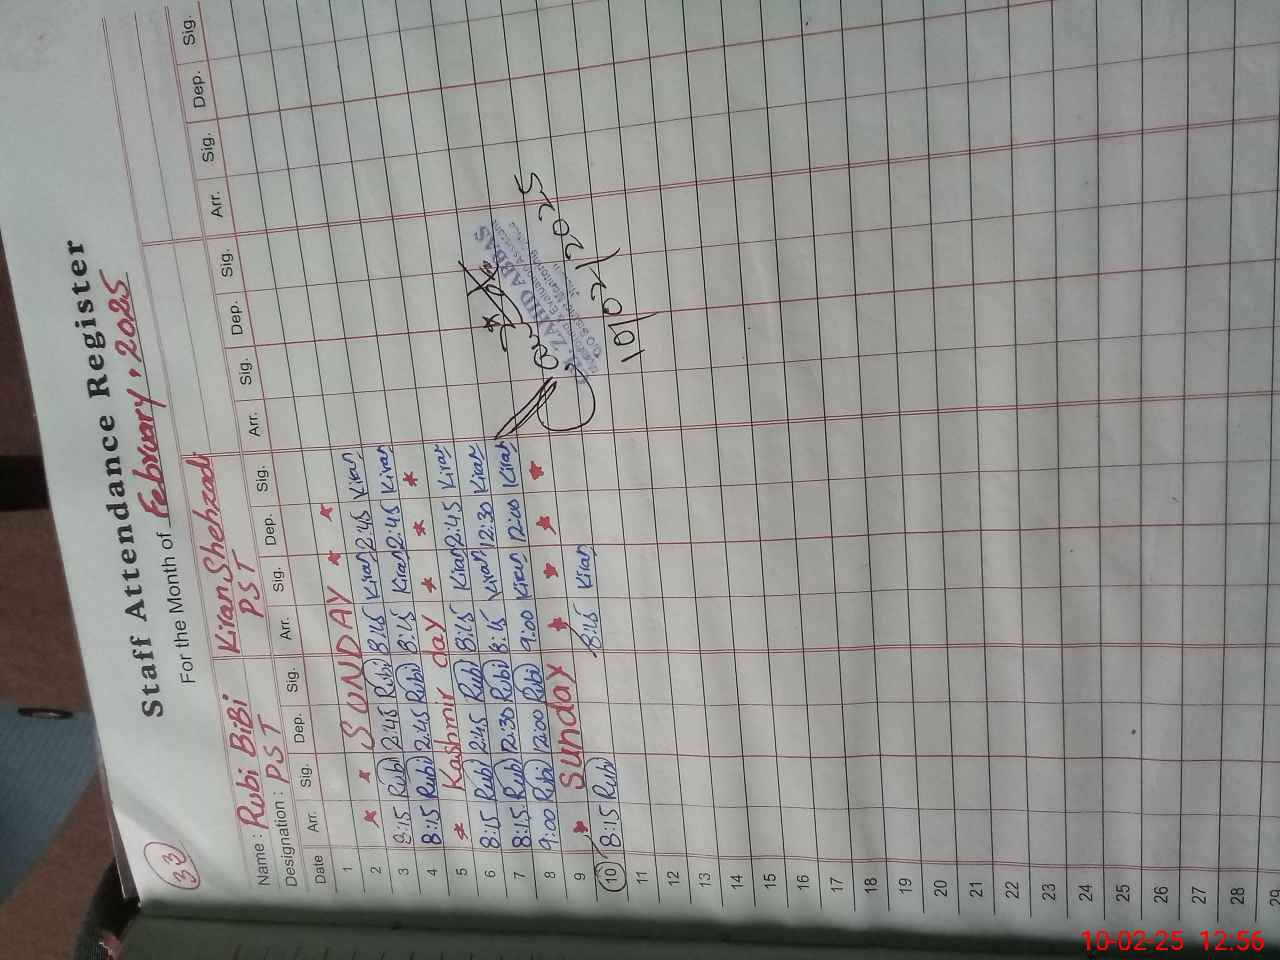 33
Staff Attendance Register
For the Month of February, 2025
Name : Rubi BiBi Kiran Shehzadi
Designation : PST PST
Date Arr. Sig. Dep. Sig. Arr. Sig. Dep. Sig. Arr. Sig. Dep. Sig. Arr. Sig. Dep. Sig.
1
2 * * SUNDAY * *
3 8:15 Rubi 2:45 Rubi 8:15 Kiran 2:45 Kiran
4 8:15 Rubi 2:45 Rubi 8:15 Kiran 2:45 Kiran
5 * Kashmir day * * *
6 8:15 Rubi 2:45 Rubi 8:15 Kiran 2:45 Kiran
7 8:15 Rubi 12:30 Rubi 8:15 Kiran 12:30 Kiran
8 9:00 Rubi 12:00 Rubi 9:00 Kiran 12:00 Kiran
9 * Sunday * * * *
10 8:15 Rubi 8:15 Kiran
ZAHID ABBAS
10/02/2025
11
12
13
14
15
16
17
18
19
20
21
22
23
24
25
26
27
28
29
10-02-25 12:56